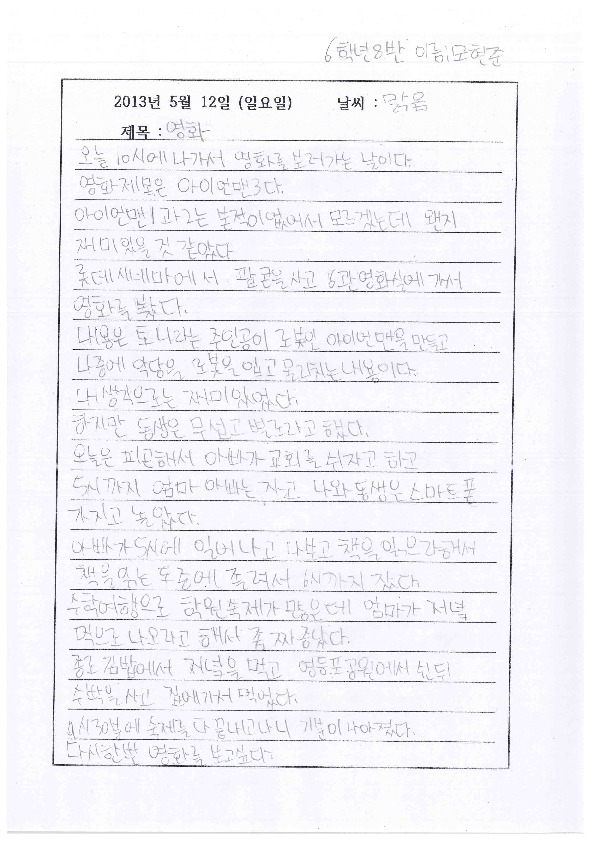 6학년 8반 이름: 모현준
2013년 5월 12일 (일요일) 날씨 : 맑음
제목 : 영화
오늘 10시에 나가서 영화를 보러가는 날이다.
영화제목은 아이언맨3다.
아이언맨1과2는 본적이없어서 모르겠는데 왠지
재미있을 것 같았다
롯데시네마에서 팝콘을 사고 6관영화식에 가서
영화를 봤다.
내용은 토니라는 주인공이 로봇인 아이언맨을 만들고
나중에 악당을 로봇을 입고 물리치는내용이다.
내 생각으로는 재미있었다.
하지만 동생은 무섭고 별로라고 했다.
오늘은 피곤해서 아빠가 교회를 쉬자고 하고
5시까지 엄마 아빠는 자고 나와 동생은 스마트폰
가지고 놀았다.
아빠가 5시에 일어나고 나보고 책을 읽으라해서
책을 읽는 도중에 졸려서 6시까지 잤다
수학여행으로 학원숙제가 많은데 엄마가 저녁
먹으로 나오라고 해서 좀 짜증났다.
종로김밥에서 저녁을 먹고 영등포공원에서 쉰뒤
수박을 사고 집에가서 먹었다.
9시30분에 숙제를 다 끝내고나니 기분이 나아졌다.
다시한번 영화를 보고싶다.